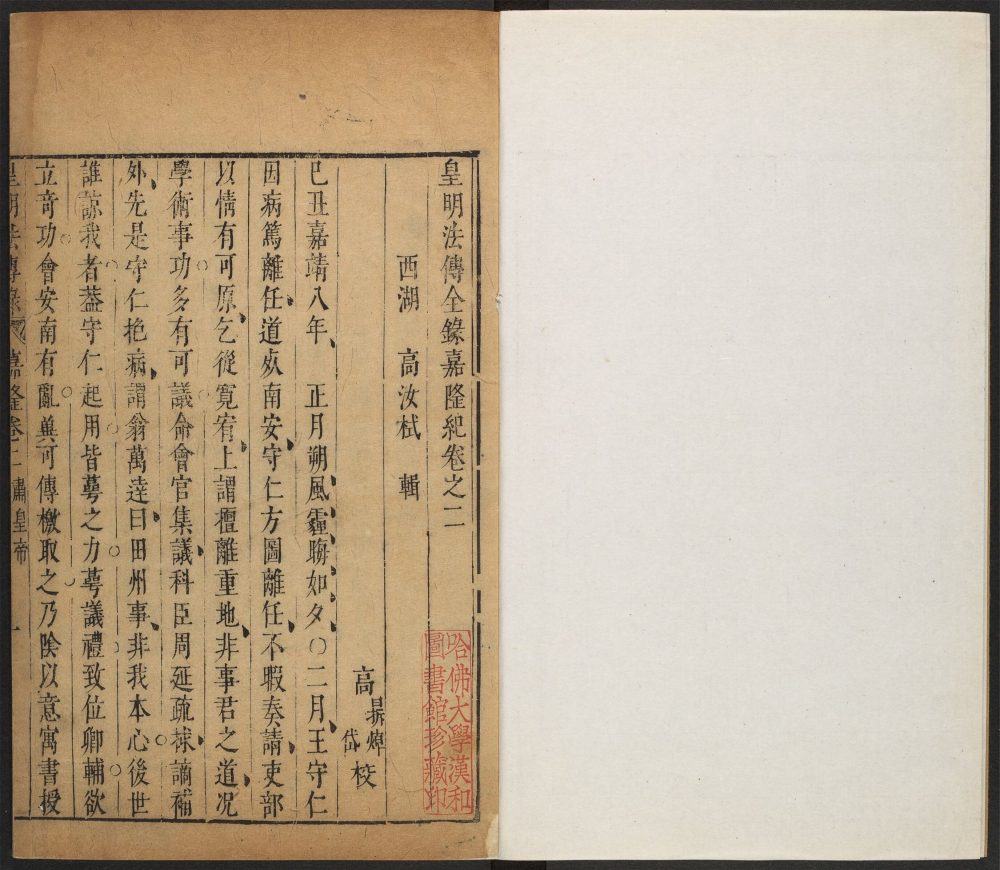 皇明法傳全錄嘉隆紀卷之二
西湖　高汝栻　輯
高　校
己丑嘉靖八年　正月朔風霾晦如夕○二月王守仁
因病篤離任道處南安守仁方圖離任不暇奏請吏部
以情有可原乞從寬宥上謂擅離重地非事君之道况
學術事功多有可議命會官集議科臣周延疏捄謫補
外先是守仁抱病謂翁萬逹曰田州事非我本心後世
誰諒我者葢守仁起用皆蕚之力蕚議禮致位卿輔欲
立竒功會安南有亂兾可傳檄取之乃陰以意寓書授
皇明法傳錄　嘉隆卷二　肅皇帝　一
哈佛大學漢和
圖書館珍藏印